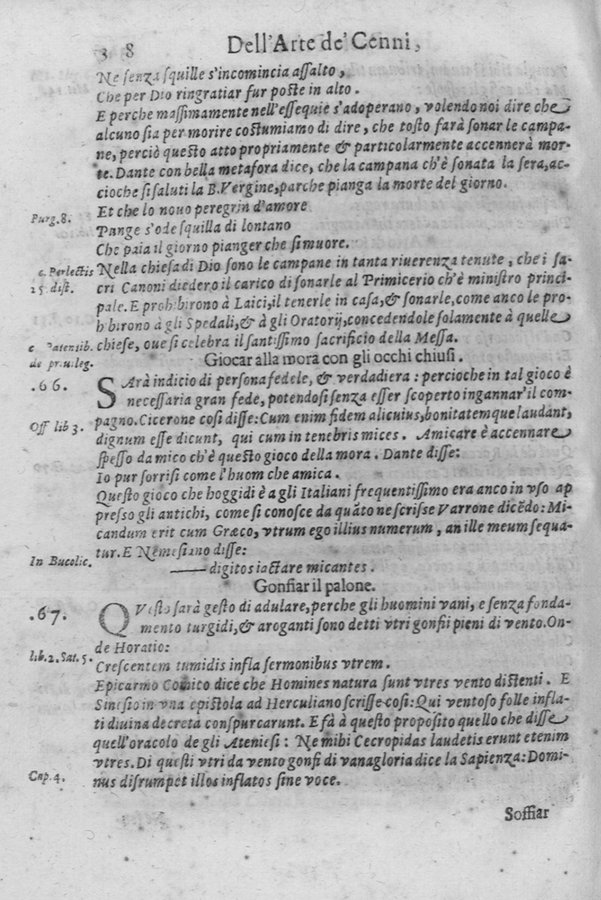 3 8 Dell'Arte de' Cenni,
Ne senza squille s'incomincia assalto,
Che per Dio ringratiar fur poste in alto.
E perche massimamente nell'essequie s'adoperano, volendo noi dire che
alcuno sia per morire costumiamo di dire, che tosto farà sonar le campa-
ne, perciò questo atto propriamente & particolarmente accennerà mor-
te. Dante con bella metafora dice, che la campana ch'è sonata la sera, ac-
cioche si saluti la B. Vergine, parche pianga la morte del giorno.
Purg. 8. Et che lo nouo peregrin d'amore
Punge s'ode squilla di lontano
Che paia il giorno pianger che si muore.
c. Perlectis Nella chiesa di Dio sono le campane in tanta riuerenza tenute, che i sa-
25. dist. cri Canoni diedero il carico di sonarle al Primicerio ch'è ministro princi-
pale. E prohibirono à Laici, il tenerle in casa, & sonarle, come anco le pro-
hibirono à gli Spedali, & à gli Oratorij, concedendole solamente à quelle
c Patentib. chiese, oue si celebra il santissimo sacrificio della Messa.
de priuileg. Giocar alla mora con gli occhi chiusi.
.66. SArà indicio di persona fedele, & verdadiera: percioche in tal gioco è
necessaria gran fede, potendosi senza esser scoperto ingannar'il com-
Off lib 3. pagno. Cicerone cosi disse: Cum enim fidem alicuius, bonitatemque laudant,
dignum esse dicunt, qui cum in tenebris mices. Amicare è accennare
spesso da mico ch'è questo gioco della mora. Dante disse:
Io pur sorrisi come l'huom che amica.
Questo gioco che hoggidi è a gli Italiani frequentissimo era anco in vso ap
presso gli antichi, come si conosce da quãto ne scrisse Varrone dicẽdo: Mi-
candum erit cum Græco, vtrum ego illius numerum, an ille meum sequa-
tur. E Nemesiano disse:
In Bucolic. —— digitos iactare micantes.
Gonfiar il palone.
.67. QVesto sarà gesto di adulare, perche gli huomini vani, e senza fonda-
mento turgidi, & aroganti sono detti vtri gonfii pieni di vento. On-
de Horatio:
lib. 2. Sat. 5. Crescentem tumidis infla sermonibus vtrem.
Epicarmo Comito dice che Homines natura sunt vtres vento distenti. E
Sinesio in vna epistola ad Herculiano scrisse cosi: Qui ventoso folle infla-
ti diuina decreta conspurcarunt. E fà à questo proposito quello che disse
quell'oracolo de gli Ateniesi: Ne mihi Cecropidas laudetis erunt etenim
vtres. Di questi vtri da vento gonfi di vanagloria dice la Sapienza: Domi-
Cap. 4. nus disrumpet illos inflatos sine voce.
Soffiar